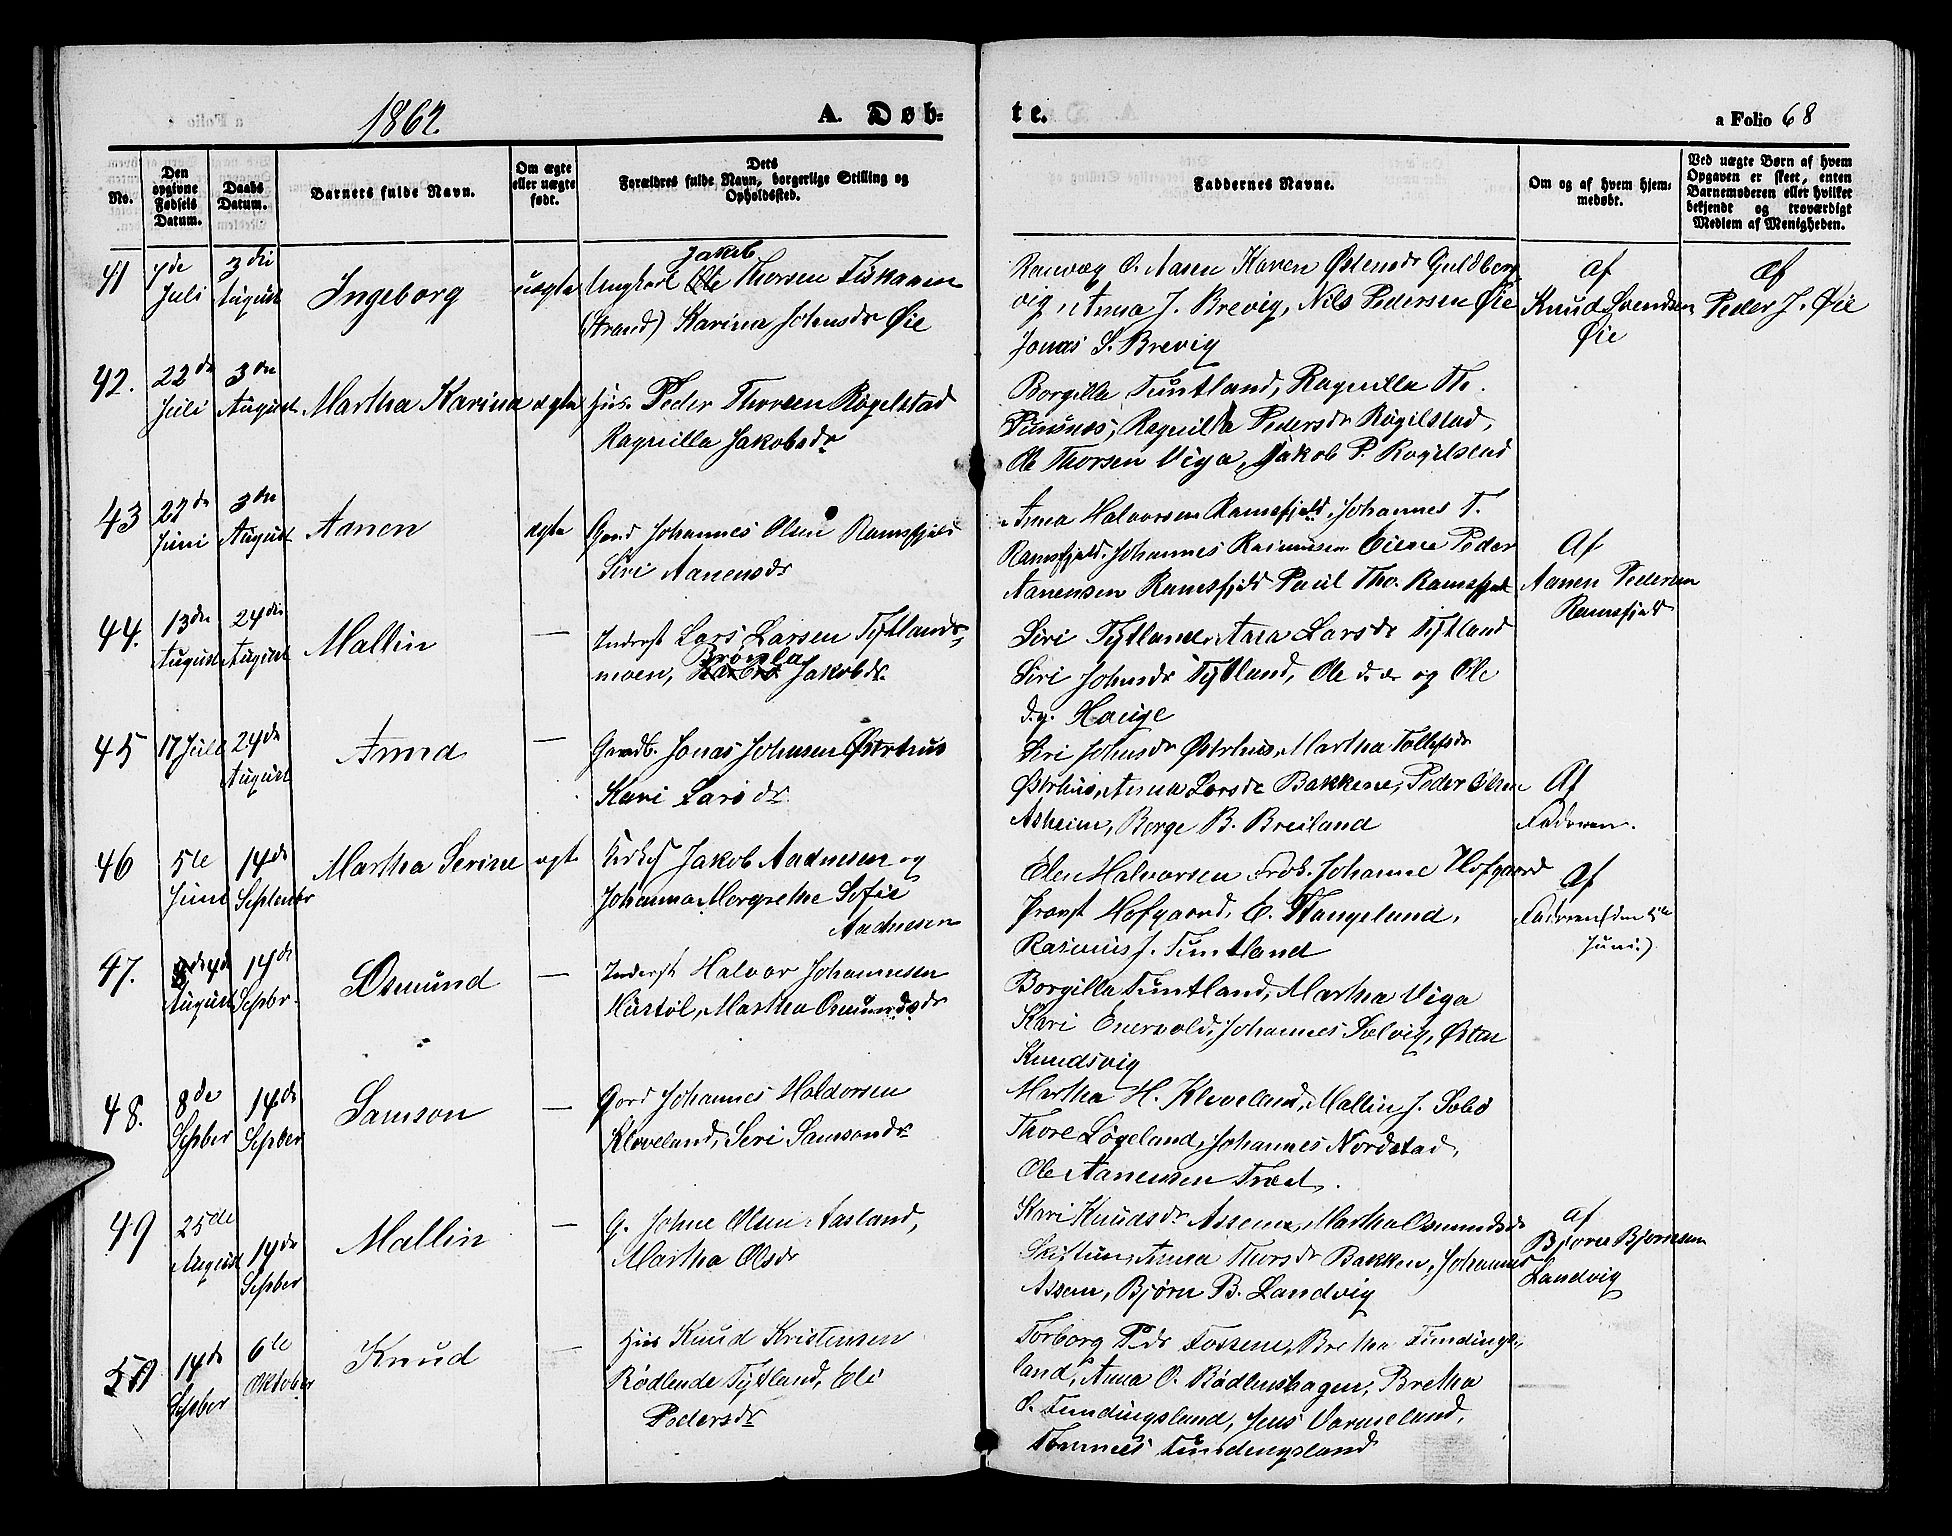 1862.
A. Døb-
te.
a Folio 68
No.
Den opgivne Fødsels Datum.
Daabs Datum.
Barnets fulde Navn.
Om ægte eller uægte født.
Dets Forældres fulde Navn, borgerlige Stilling og Opholdssted.
Faddernes Navne.
Om og af hvem hjemmedøbt.
Ved uægte Børn af hvem Opgaven er skeet, enten Barnemoderen eller hvilket bekjendt og troværdigt Medlem af Menigheden.
41 7de Juli 3die August Ingeborg uægte Ungkarl Jakob Thorsen Fiskaaen
(Strand) Karina Johnsdr Øie
Ranvæg O. Aasen Karen Østensdr Guldberg
vig, Anna J. Brevig, Nils Pedersen Øie
Jonas S. Brevig
Af Knud Svendsen Øie
Af Peder J. Øie
42. 22de Juli 3die August Martha Karina ægte Hus. Peder Thorsen Røgelstad
Ragnilla Jakobsdr
Borgilla Tuntland, Ragnilla Th.
Ragnilda Pedersdr Røgilstad,
Ole Thorsen Viga, Jakob P. Røgilstad
43 22de Juni 3die August Aanen ægte Gard Johannes Olsen Ramsfjeld
Siri Aanensdr
Anna Halvorsen Ramsfjeld, Johannes T.
Ramsfjeld, Johannes Rasmussen Eiene Peder
Aanensen Ramsfjeld Paul Tho. Ramsfjeld
Af Aanen Pedersen Ramsfjeld
44. 13de August 24de August Mallin — Inderst Lars Larsen Tytlands-
moen, Brønla Jakobdr.
Siri Tytland, Ana Larsdr Tytland
Siri Johnsdr Tytland, Ole d. æ og Ole
d. y. Hauge
45 17 Juli 24de August Anna — Gaardb. Jonas Johnsen Østrhus
Kari Larsdr.
Siri Johnsdr Østrhus, Martha Tollefsdr
Østrhus, Anna Larsdr Bakkene, Peder Olsen
Asheim, Børge B. Breiland
Af Faderen.
46 5te Juni 14de September Martha Serine ægt Jakob Aadnesen og
Johanna Margrethe Sofie
Aadnesen
Elen Halvorsen Frøk. Johanne Hofgaard
Provst Hofgaard, E. Tangeland,
Rasmus J. Tuntland
Af Faderen (den Juni.)
47. 4de August 14de Sepbr. Osmund — Inderst Halvor Johannesen
Hustøl, Martha Osmundsdr
Borgilla Tuntland, Martha Viga
Kari Enervold, Johannes Solvig, Østen
Knudsvig
48. 8de Sepber 14de Sepber Samson — Gard Johannes Haldorsen
Kleveland, Seri Samsondr.
Martha H. Kleveland, Mallin J. Sobø
Thore Løgeland, Johannes Nordstad,
Ole Aanensen Træet.
49 25de August 14de Sepber Mallin — G. Johne Olsen Aasland,
Martha Olsdr
Kari Knudsdr Assem, Martha Osmundsdr
Skiftun, Anna Thorsdr Bakken, Johannes
Assem, Bjørn B. Landvig
af Bjørne Bjørnesen Landvig
50 14de Sepber 6te Oktober Knud — Hus Knud Kristensen
Rødlende Tytland, Eli
Pedersdr
Torborg Pedr Fossene, Bretha Tundings-
land, Anna O. Rødlenshagen, Bretha
O. Tundingsland, Jens Varmeland,
Tønnes Tundingsland